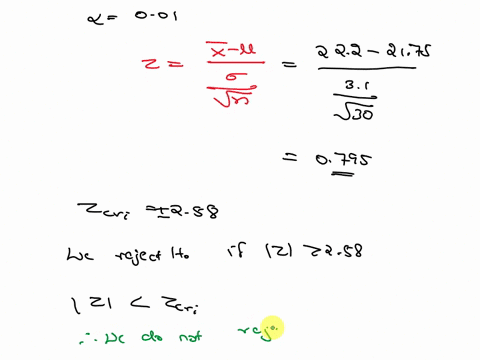 α = 0.01
z = x̄-μ / σ/√n = 22.2 - 21.75 / 3.1/√30
= 0.795
Zcri = ±2.58
We reject H₀ if |Z| > 2.58
|Z| < Zcri
∴ We do not rej